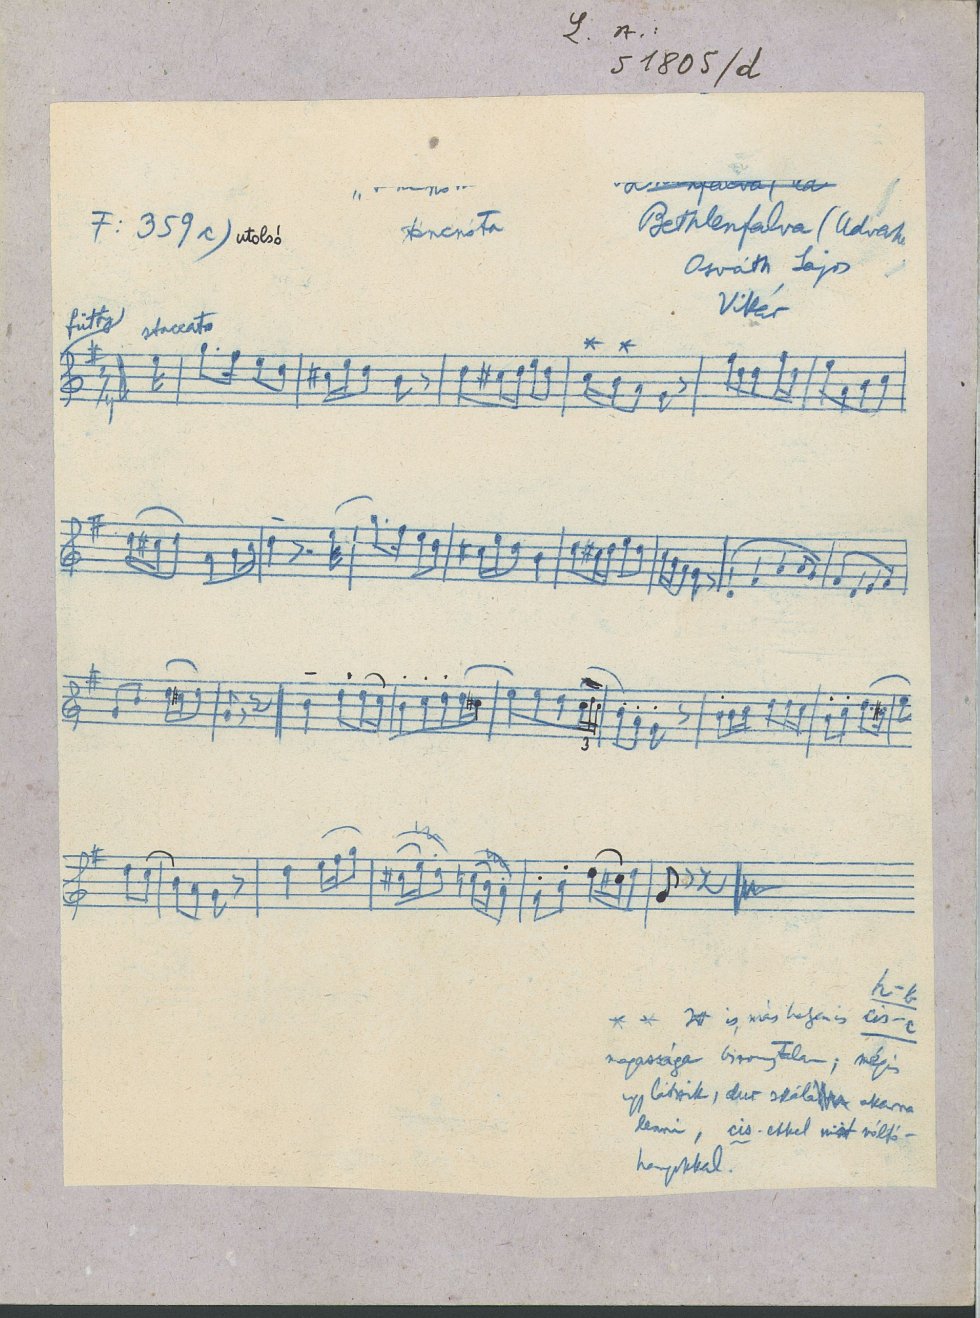 L. sz.:
51805/d
F: 359 c) utolsó
táncnóta
Bethlenfalva (Udvarh
Osváth Lajos
Vikár
fütty staccato
3
h-b
* * Itt is, más helyen is cis-c
magassága bizonytalan; mégis
úgy látszik, dur skála akarna
lenni, cis-ekkel mint váltó-
hangokkal.